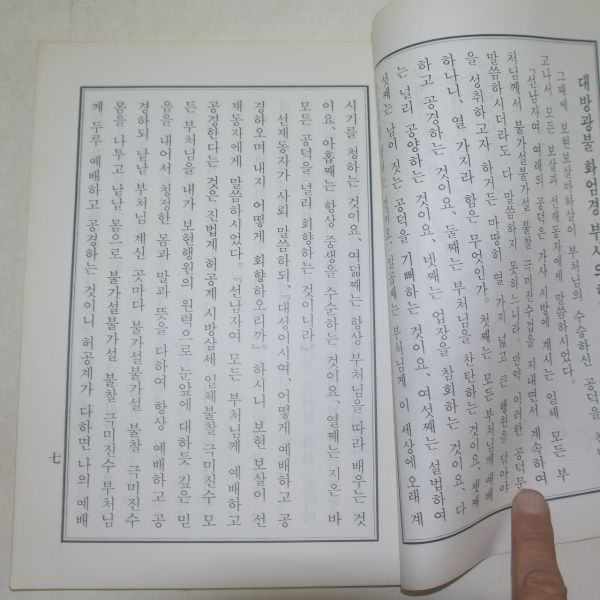 대방광불 화엄경 부사의
그때에 보현보살마하살이 부처님의 수승하신 공덕을
고나서 모든 보살과 선재동자에게 말씀하시었다.
『선남자여 여래의 공덕은 가사 시방에 계시는 일체 모든 부
처님께서 불가설불가설 불찰 극미진수겁을 지내면서 계속하여
말씀하시더라도 다 말씀하지 못하느니라 만약 이러한 공덕문
을 성취하고자 하거든 마땅히 열 가지 넓고 큰 행원을 닦아야
하나니 열 가지라 함은 무엇인가. 첫째는 모든 부처님께 예배
하고 공경하는 것이요, 둘째는 부처님을 찬탄하는 것이요, 세째
는 널리 공양하는 것이요, 넷째는 업장을 참회하는 것이요, 다
섯째는 남이 짓는 공덕을 기뻐하는 것이요, 여섯째는 설법하여
것이요, 일곱째는 부처님께 이 세상에 오래 계
시기를 청하는 것이요, 여덟째는 항상 부처님을 따라 배우는 것
이요, 아홉째는 항상 중생을 수순하는 것이요, 열째는 지은 바
모든 공덕을 널리 회향하는 것이니라』
선재동자가 사뢰 말씀하되, 『대성이시여, 어떻게 예배하고 공
경하오며 내지 어떻게 회향하오리까』 하시니 보현 보살이 선
재동자에게 말씀하시었다. 『선남자여 모든 부처님께 예배하고
공경한다는 것은 진법계 허공계 시방삼세 일체불찰 극미진수 모
든 부처님을 내가 보현행원의 원력으로 눈앞에 대하듯 깊은 믿
음을 내어서 청정한 몸과 말과 뜻을 다하여 항상 예배하고 공
경하되 낱낱 부처님 계신 곳마다 불가설불가설 불찰 극미진수
몸을 나투고 낱낱 몸으로 불가설불가설 불찰 극미진수 부처님
께 두루 예배하고 공경하는 것이니 허공계가 다하면 나의 예배
七